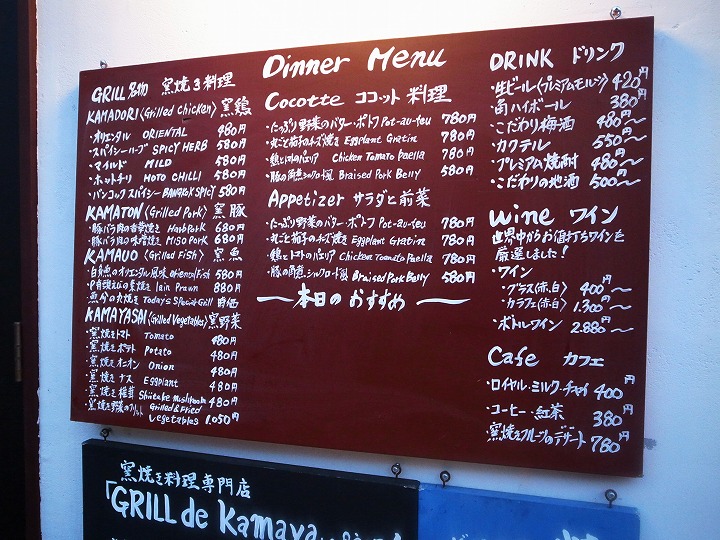 Dinner Menu
GRILL 窯焼き料理
KAMADORI〈Grilled Chicken〉窯鶏
・オリエンタル ORIENTAL 480円
・スパイシーハーブ SPICY HERB 580円
・マイルド MILD 580円
・ホットチリ HOTO CHILLI 580円
・バンコックスパイシー BANGKOK SPICY 580円
KAMATON〈Grilled Pork〉窯豚
・豚バラ肉の香草焼き Harb Pork 680円
・豚バラ肉の味噌焼き Miso Pork 680円
KAMAUO〈Grilled Fish〉窯魚
・白身魚のオリエンタル風味 oriental Fish 580円
Prawn 880円
Today's Special Grill 時価
KAMAYASAI〈Grilled Vegetables〉窯野菜
・窯焼きトマト Tomato 480円
・窯焼きポテト Potato 480円
・窯焼きオニオン Onion 480円
・窯焼きナス Eggplant 480円
・窯焼き椎茸 Shiitake Mushroom 480円
・窯焼き野菜のフリット Grilled & Fried
vegetables 1.050円
Cocotte ココット料理
・たっぷり野菜のバター・ポトフ Pot-au-feu 780円
・丸ごと茄子のチーズ焼き Eggplant Gratin 780円
・鶏とトマトのパエリア Chicken Tomato Paella 780円
・豚の角煮シルクロード風 Braised Pork Belly 580円
Appetizer サラダと前菜
・たっぷり野菜のバター・ポトフ Pot-au-feu 780円
・丸ごと茄子のチーズ焼き Eggplant Gratin 780円
・鶏とトマトのパエリア Chicken Tomato Paella 780円
・豚の角煮シルクロード風 Braised Pork Belly 580円
本日のおすすめ
DRINK ドリンク
・生ビール〈プレミアムモルツ〉420円
・角ハイボール 380円
・こだわり梅酒 480円〜
・カクテル 550円〜
・プレミアム焼酎 480円〜
・こだわりの地酒 500円〜
Wine ワイン
世界中からお値打ちワインを
厳選しました!
・ワイン
・グラス〈赤・白〉 400円〜
・カラフェ〈赤・白〉 1.300円〜
・ボトルワイン 2.880円〜
Cafe カフェ
・ロイヤル・ミルク・チャイ 400円
・コーヒー・紅茶 380円
・窯焼きフルーツのデザート 780円
窯焼き料理専門店
「GRILL de Kamaya